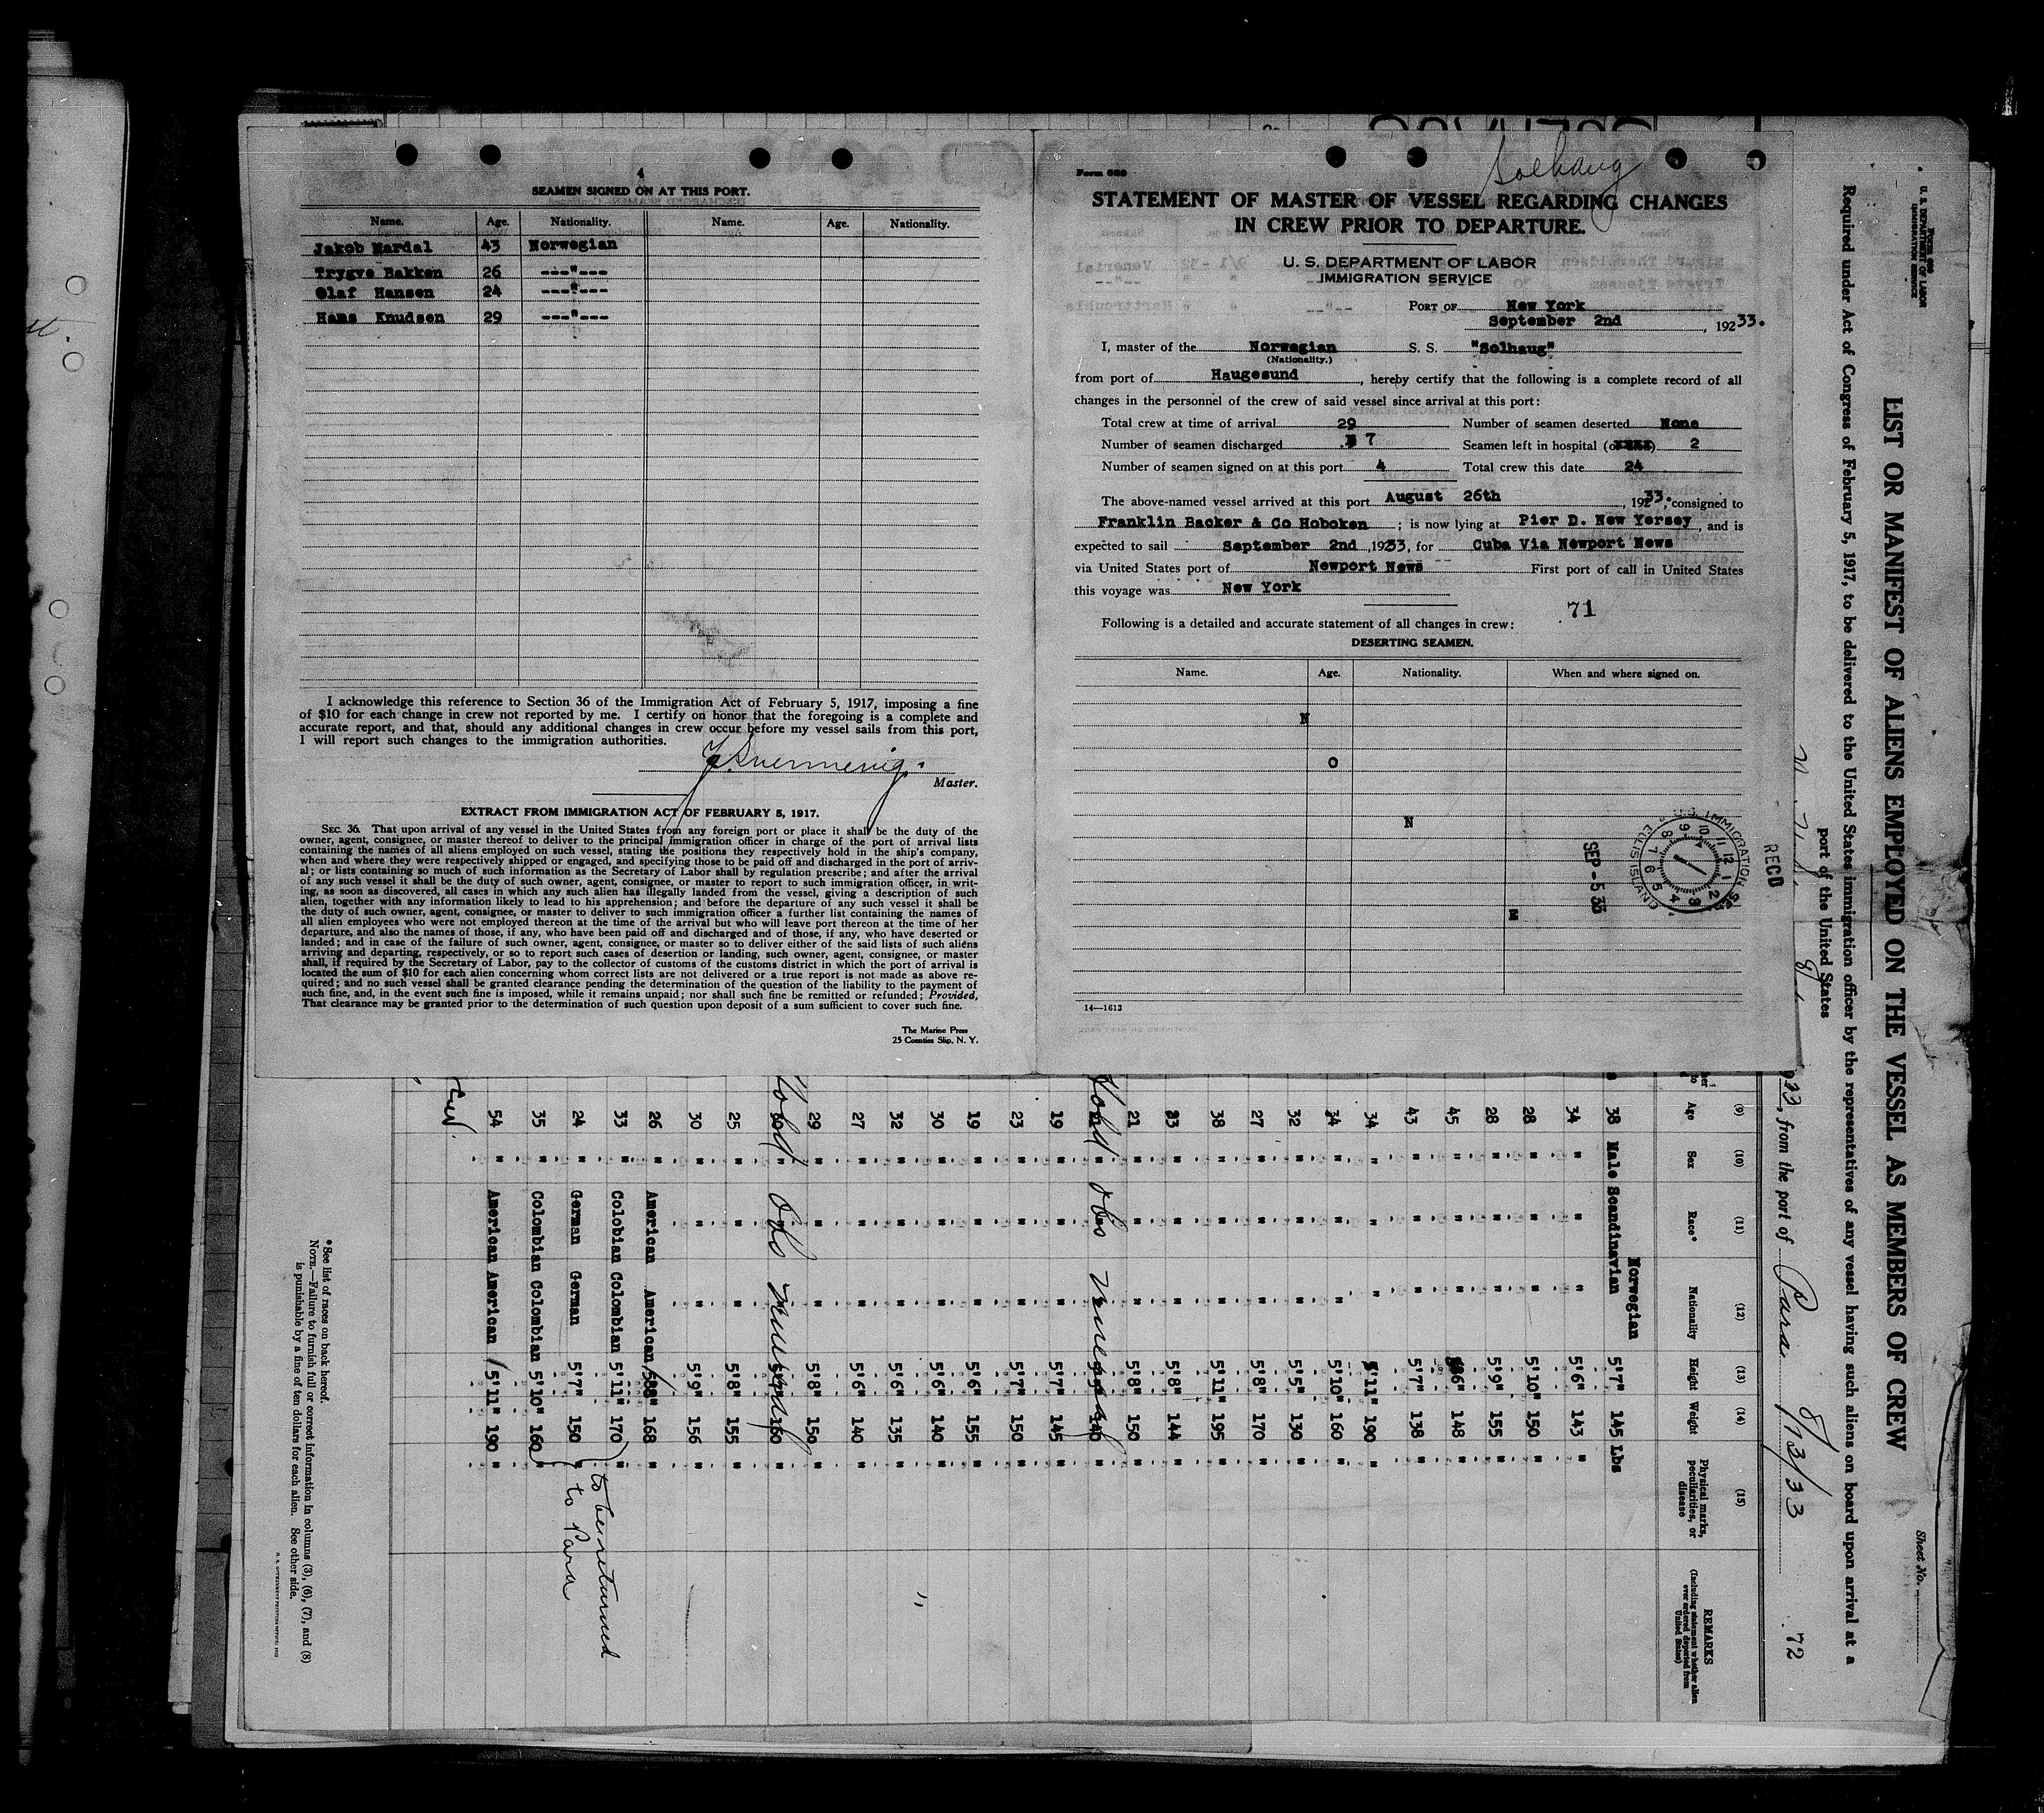 4
SEAMEN SIGNED ON AT THIS PORT.
Name. Age. Nationality. Name. Age. Nationality.
Jakob Mardal 43 Norwegian
Trygve Bakken 26 ---"---
Olaf Hansen 24 ---"---
Hans Knudsen 29 ---"---
I acknowledge this reference to Section 36 of the Immigration Act of February 5, 1917, imposing a fine
of $10 for each change in crew not reported by me. I certify on honor that the foregoing is a complete and
accurate report, and that, should any additional changes in crew occur before my vessel sails from this port,
I will report such changes to the immigration authorities.
Master.
EXTRACT FROM IMMIGRATION ACT OF FEBRUARY 5, 1917.
SEC. 36. That upon arrival of any vessel in the United States from any foreign port or place it shall be the duty of the
owner, agent, consignee, or master thereof to deliver to the principal immigration officer in charge of the port of arrival lists
containing the names of all aliens employed on such vessel, stating the positions they respectively hold in the ship's company,
when and where they were respectively shipped or engaged, and specifying those to be paid off and discharged in the port of arriv-
al; or lists containing so much of such information as the Secretary of Labor shall by regulation prescribe; and after the arrival
of any such vessel it shall be the duty of such owner, agent, consignee, or master to report to such immigration officer, in writ-
ing, as soon as discovered, all cases in which any such alien has illegally landed from the vessel, giving a description of such
alien, together with any information likely to lead to his apprehension; and before the departure of any such vessel it shall be
the duty of such owner, agent, consignee, or master to deliver to such immigration officer a further list containing the names of
all alien employees who were not employed thereon at the time of the arrival but who will leave port thereon at the time of her
departure, and also the names of those, if any, who have been paid off and discharged and of those, if any, who have deserted or
landed; and in case of the failure of such owner, agent, consignee, or master so to deliver either of the said lists of such aliens
arriving and departing, respectively, or so to report such cases of desertion or landing, such owner, agent, consignee, or master
shall, if required by the Secretary of Labor, pay to the collector of customs of the customs district in which the port of arrival is
located the sum of $10 for each alien concerning whom correct lists are not delivered or a true report is not made as above re-
quired; and no such vessel shall be granted clearance pending the determination of the question of the liability to the payment of
such fine, and, in the event such fine is imposed, while it remains unpaid; nor shall such fine be remitted or refunded; Provided,
That clearance may be granted prior to the determination of such question upon deposit of a sum sufficient to cover such fine.
The Marine Press
25 Coenties Slip, N. Y.
Solhaug
Form 689
STATEMENT OF MASTER OF VESSEL REGARDING CHANGES
IN CREW PRIOR TO DEPARTURE.
U. S. DEPARTMENT OF LABOR
IMMIGRATION SERVICE
PORT OF New York
September 2nd, 19233.
I, master of the Norwegian S. S. "Solhaug"
(Nationality.)
from port of Haugesund, hereby certify that the following is a complete record of all
changes in the personnel of the crew of said vessel since arrival at this port:
Total crew at time of arrival 29 Number of seamen deserted None
Number of seamen discharged 7 Seamen left in hospital (or xxxx) 2
Number of seamen signed on at this port 4 Total crew this date 24
The above-named vessel arrived at this port August 26th, 19233., consigned to
Franklin Backer & Co Hoboken; is now lying at Pier D. New Yersey, and is
expected to sail September 2nd, 19233, for Cuba Via Newport News
via United States port of Newport News First port of call in United States
this voyage was New York
71
Following is a detailed and accurate statement of all changes in crew:
DESERTING SEAMEN.
Name. Age. Nationality. When and where signed on.
N
O
N
E
14—1613
RECD
U.S. IMMIGRATION
ELLIS ISLAND
SEP - 5 33
Form 689
U. S. DEPARTMENT OF LABOR
IMMIGRATION SERVICE
Sheet No.
LIST OR MANIFEST OF ALIENS EMPLOYED ON THE VESSEL AS MEMBERS OF CREW
Required under Act of Congress of February 5, 1917, to be delivered to the United States immigration officer by the representatives of any vessel having such aliens on board upon arrival at a
port of the United States
933, from the port of Para 8/13/33 72
(9) (10) (11) (12) (13) (14) (15)
Age Sex Race* Nationality Height Weight Physical marks, peculiarities, or disease REMARKS
(Including statement whether alien ever ordered deported from United States)
38 Male Scandinavian Norwegian 5'7" 145 Lbs
34 " " " 5'6" 143 "
28 " " " 5'10" 150 "
28 " " " 5'9" 155 "
45 " " " 148 "
43 " " " 5'7" 138 "
34 " " " 5'11" 190 "
34 " " " 5'10" 160 "
32 " " " 5'5" 130 "
27 " " " 5'8" 170 "
38 " " " 5'11" 195 "
33 " " " 5'8" 144 "
21 " " " 5'8" 150 "
140 "
19 " " " 5'7" 145 "
23 " " " 5'7" 150 "
19 " " " 5'6" 155 "
30 " " " 5'6" 140 "
32 " " " 5'6" 135 "
27 " " " 5'6" 140 "
29 " " " 5'8" 150 "
160 "
25 " " " 5'8" 155 "
30 " " " 5'9" 156 "
26 " American American 168 "
33 " Colobian Colombian 5'11" 170 "
24 " German German 5'7" 150 "
35 " Colombian Colombian 5'10" 160 "
54 " American American 5'11" 190 "
to be returned
to Para
*See list of races on back hereof.
NOTE.—Failure to furnish full or correct information in columns (3), (6), (7), and (8)
is punishable by a fine of ten dollars for each alien. See other side.